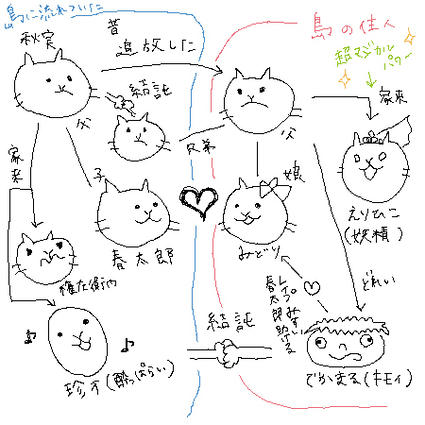 島に流れついた
秋実
昔
追放した
島の住人
超マジカル
パワー
結託
父
兄弟
父
家来
家来
子
春太郎
娘
みどり
えりひこ
(妖精)
権左衛門
どれい
レイプみすい
春太郎助ける
結託
珍才(酔っぱらい)
でかまる(キモイ)